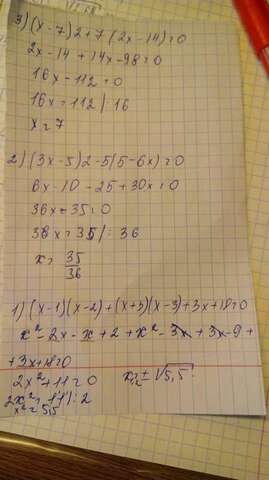 3) (x-7)2+7(2x-14)=0
2x-14+14x-98=0
16x-112=0
16x=112 |:16
x=7
2) (3x-5)2-5(5-6x)=0
6x-10-25+30x=0
36x-35=0
36x=35|:36
x= 35/36
1) (x-1)(x-2)+(x+3)(x-3)+3x+18=0
x²-2x-x+2+x²-3x+3x-9+
+3x+18=0
2x²+11=0
2x²=11|:2
x²=5,5
x₁,₂=±√5,5